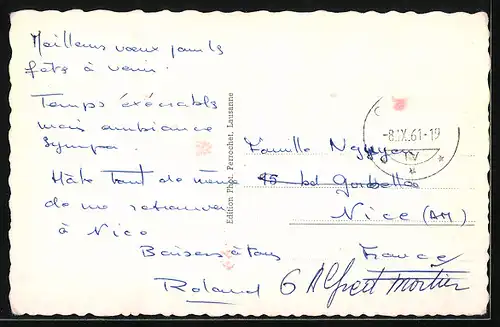 Meilleurs vœux pour les
fêtes à venir.
Temps éxécrable
mais ambiance
sympa.
Hâte tant de même
de me retrouver
à Nice
Baisers à tous
Roland
Edition Phot. Perrochet, Lausanne
-8.IX.61-19
Famille Nguyen
45 bd Gorbella
Nice (AM)
France
6 Alfred Mortier